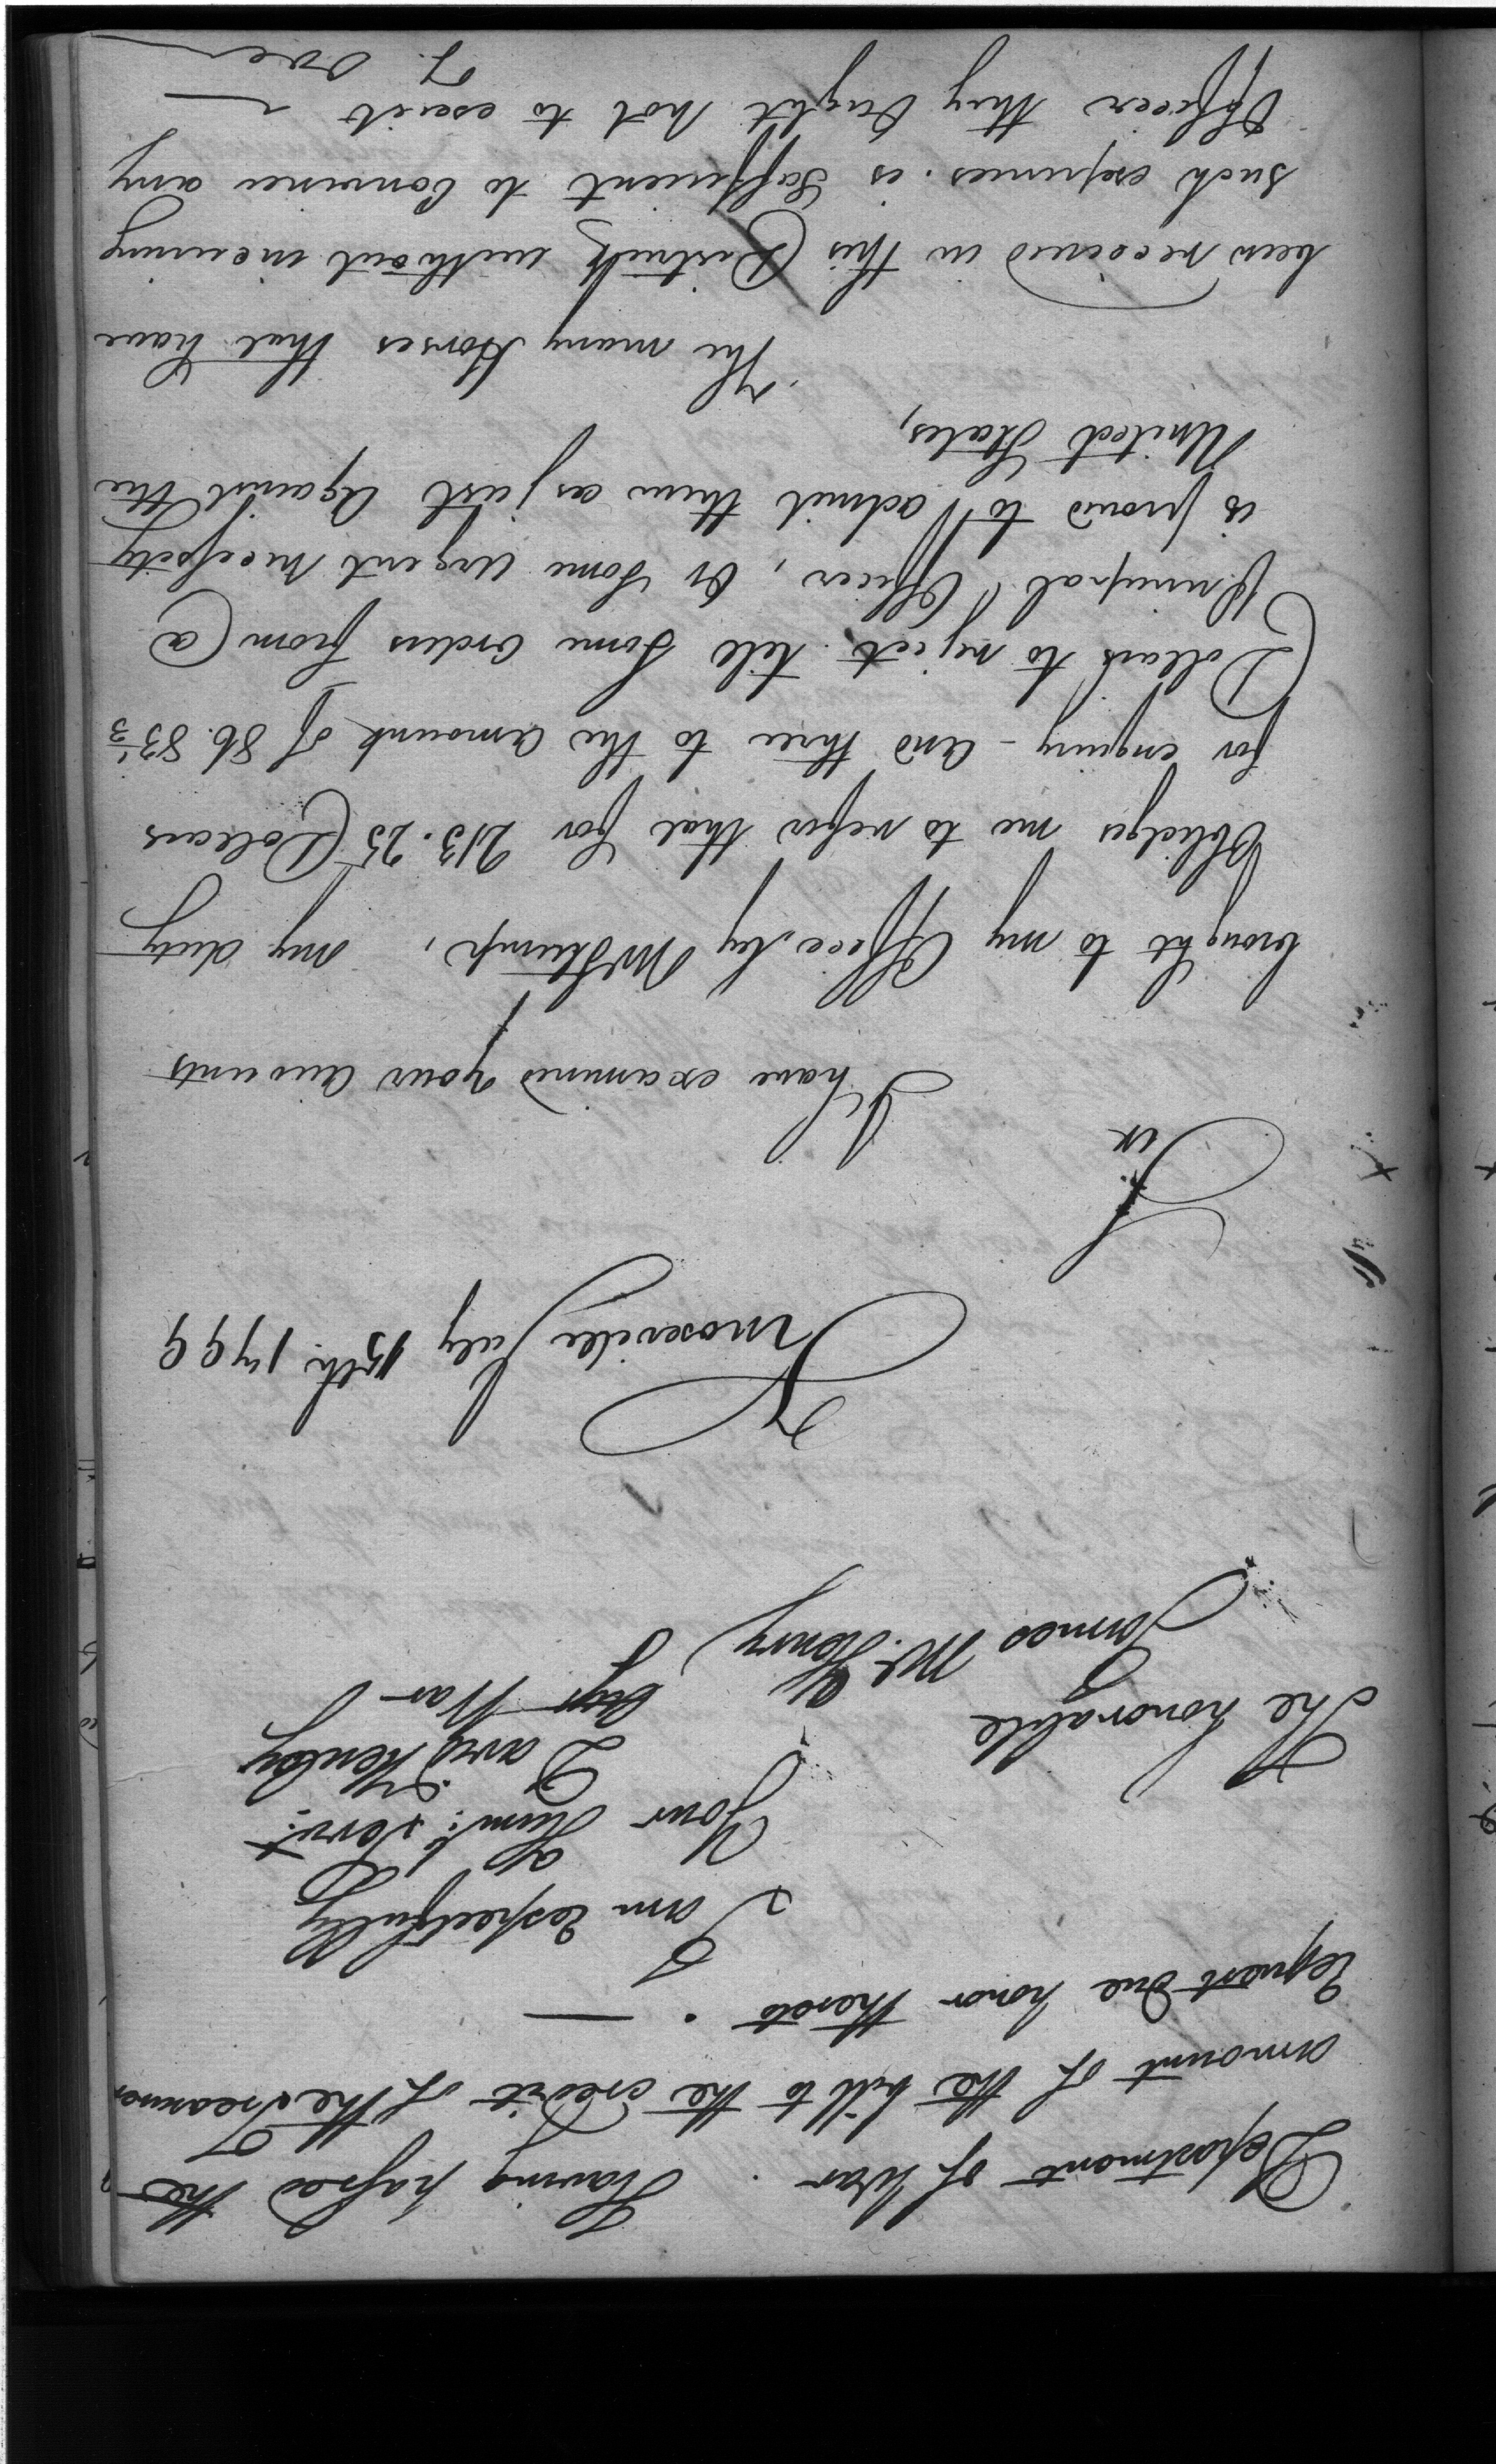 Department of War. Having passed the
amount of the bill to the credit of the Treasurer
Request due honor thereto. —
I am respectfully
Your Huml: Servt:
David Henley
Agt War
The honorable
James McHenry
Knoxville July 15th. 1799
Sir
I have examined your accounts
brought to my Office, by Mr Stump, my duty
Oblidges me to refer that for 213.25 Dollars
for enquiry - and three to the amount of 86.83 1/3
Dollars to reject till some orders from a
Principal Officer, or some urgent necessity
is proved to admit them as just against the
United States,
The many Horses that have
been received in this District, without incuring
such expences is Sufficient to Convince any
Officer they Ought not to exist
T. Over